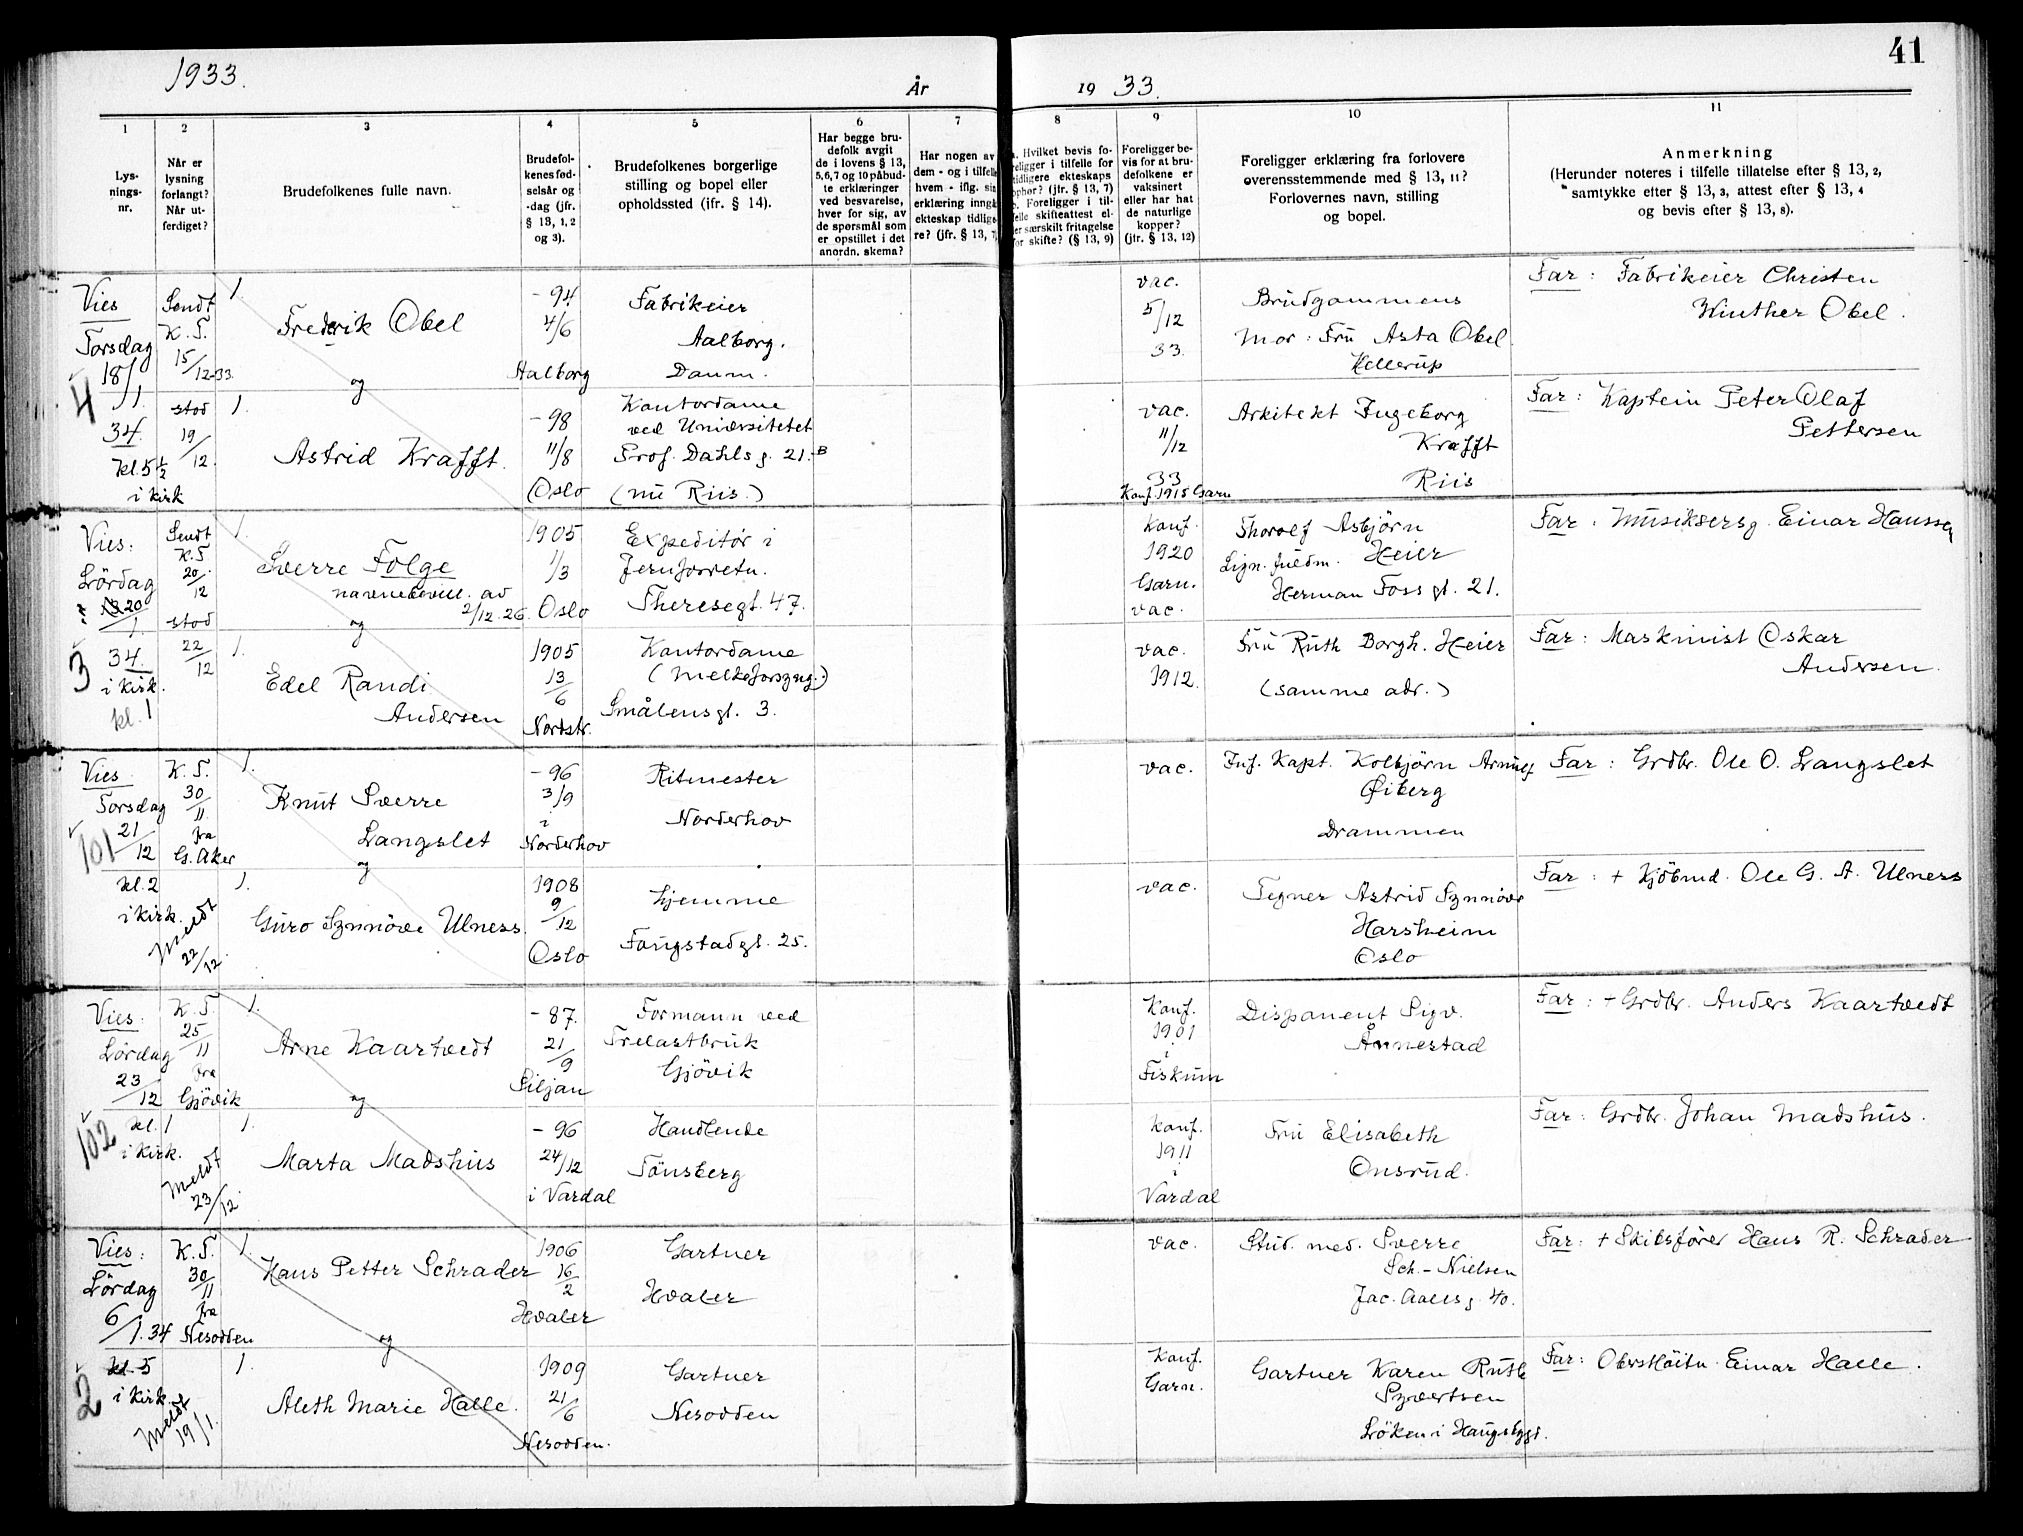 1933.
År
19 33.
41
1
2
3
4
5
6
7
8
9
10
11
Lys-
nings-
nr.
Når er
lysning
forlangt?
Når ut-
ferdiget?
Brudefolkenes fulle navn.
Brudefol-
kenes fød-
selsår og
-dag (jfr.
§ 13, 1, 2
og 3).
Brudefolkenes borgerlige
stilling og bopel eller
opholdssted (ifr. § 14).
Har begge bru-
defolk avgit
de i lovens § 13,
5,6,7 og 10 påbud-
te erklæringer
ved besvarelse,
hver for sig, av
de spørsmål som
er opstillet i det
anordn. skema?
Har nogen av
dem - og i tilfelle
hvem - iflg. sin
erklæring inngå
ekteskap tidlige
re? (jfr. § 13, 7,
a. Hvilket bevis fo-
religger i tilfelle for
tidligere ekteskaps
ophør? (jfr. § 13, 7)
b. Foreligger i til-
felle skifteattest el-
ler særskilt fritagelse
for skifte? (§ 13, 9)
Foreligger be-
vis for at bru-
defolkene er
vaksinert
eller har hat
de naturlige
kopper?
(jfr. § 13, 12)
Foreligger erklæring fra forlovere
overensstemmende med § 13, 11?
Forlovernes navn, stilling
og bopel.
Anmerkning
(Herunder noteres i tilfelle tillatelse efter § 13, 2,
samtykke efter § 13, 3, attest efter § 13, 4
og bevis efter § 13, 8).
4
Vies
Torsdag
18/
/1.
34.
kl. 5 1/2
i kirk
Sendt
K. T.
15/12-33.
stod
19/12.
1.
Frederik Obel
og
- 94
4/6
Aalborg
Fabrikeier
Aalborg.
Danm.
vac.
5/12
33.
Brudgommens
Mor: Fru Asta Obel.
Hellerup
Far: Fabrikeier Christen
Winther Obel.
1.
Astrid Krafft.
- 98
11/8
Oslo
Kontordame
ved Universitetet
Prof. Dahls g. 21.B
(nu Riis.)
vac.
11/12
33
Konf. 1915 Garn
Arkitekt Ingeborg
Krafft
Riis
Far: Kaptein Peter Olaf
Pettersen
3
Vies:
Lördag
20
/1.
34.
i kirk.
kl. 1
Sendt
K.T
20/12
stod
22/12
1.
Sverre Folge
navnebevill. av
2/12.26.
og
1905
1/3
Oslo
Expeditör i
Jernforretn.
Theresegt. 47.
Konf.
1920
Garn.
vac.
Thorolf Asbjörn
Heier
Herman Foss gt. 21.
Far: Musikersg. Einar Hanssen
1.
Edel Randi
Andersen
1905
13/6
Nordstr.
Kontordame
(Melkeforsyng.)
Smålensgt. 3.
vac.
1912.
Fru Ruth Borgh. Heier
(samme adr.)
Far: Maskinist Oskar
Andersen.
101
Vies
Torsdag
21/12
kl. 2
i kirk.
K. T.
30/11
fra
G. Aker
Meldt
22/12.
1.
Knut Sverre
Langslet
og
- 96
3/9
i
Norderhov
Ritmester
Norderhov
vac.
Inf. Kapt. Kolbjörn Arnulf
Øiberg
Drammen
Far: Grdbr. Ole O. Langslet
1.
Guro Synnöve Ulness.
1908
9/12
Oslo
hjemme
Faugstadgt. 25.
vac.
Tegner Astrid Synnöve
Harsheim
Oslo
Far: + Kjöbmd. Ole G. A. Ulness
102
Vies.
Lördag
23/12
kl. 1
i kirk.
K. T.
25/11
fra
Gjövik
Meldt
23/12.
1.
Arne Kaartvedt
og
- 87.
21/9
Siljan
Formann ved
Trelastbruk
Gjövik
Konf.
1901
i
Fiskum
Disponent Sigv.
Ånnestad
Far: + Grdbr. Anders Kaartvedt
1.
Marta Madshus
- 96
24/12
i Vardal
Handlende
Tönsberg
Konf.
1911
i
Vardal
Fru Elisabeth
Onsrud.
Far: Grdbr. Johan Madshus.
2
Vies:
Lördag
6/1.34
kl. 5
i kirk.
K. T.
30/11
fra
Nesodden
Meldt
19/1.
1.
Hans Petter Schrader
og
1906
16/2
Hvaler
Gartner
Hvaler
vac.
Stud. med. Sverre
Sch.-Nielsen
Jac. Aalls g. 40.
Far: + Skibsfører Hans R. Schrader
1.
Aleth Marie Halle.
1909
21/6
Nesodden.
Gartner
Nesodden
Konf.
Garn.
Gartner Karen Ruth
Syvertsen
Löken i Haugsbygd.
Far: Oberstlöitn. Einar Halle.